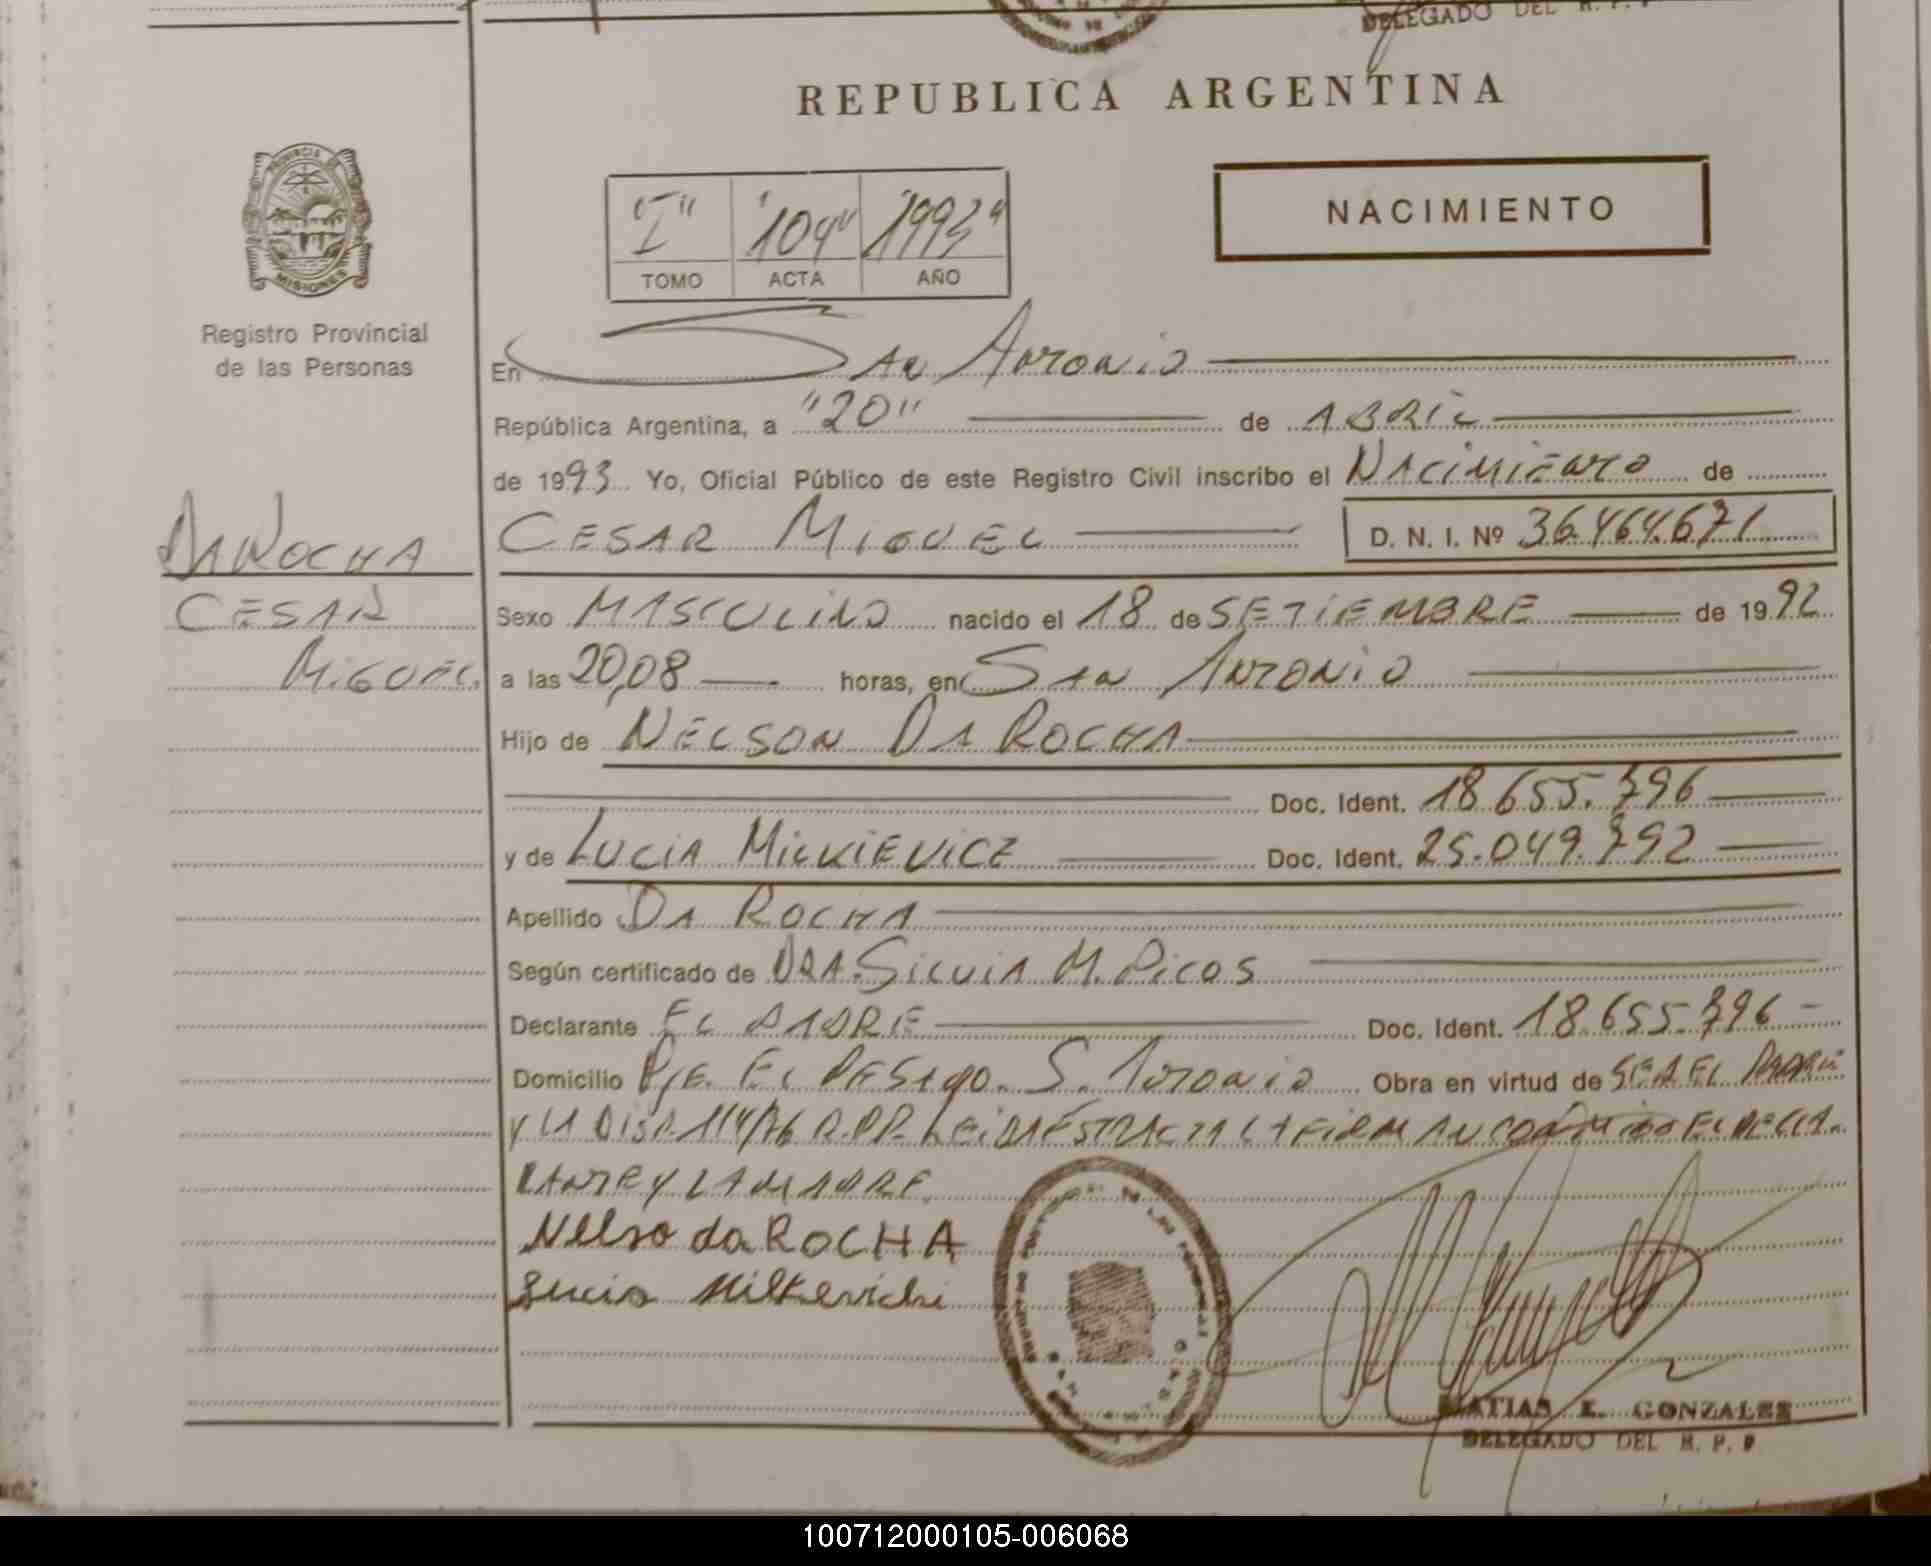 DELEGADO DEL R. P. P
REPUBLICA ARGENTINA
PROVINCIA DE
MISIONES
Registro Provincial
de las Personas
"I" "104" "1993"
TOMO ACTA AÑO
NACIMIENTO
En San Antonio
República Argentina, a "20" de ABRIL
de 1993 Yo, Oficial Público de este Registro Civil inscribo el NACIMIENTO de
DA ROCHA
CESAR MIGUEL D. N. I. Nº 36.464.671
CESAR
MIGUEL
Sexo MASCULINO nacido el 18 de SETIEMBRE de 1992
a las 20,08 horas, en SAN ANTONIO
Hijo de NELSON DA ROCHA
Doc. Ident. 18.655.396
y de LUCIA MILKIEVICZ Doc. Ident. 25.049.792
Apellido DA ROCHA
Según certificado de DRA. SILVIA M. PICOS
Declarante EL PADRE Doc. Ident. 18.655.396
Domicilio PJE. EL S. ANTONIO Obra en virtud de SER EL PADRE
Y LA DISP. 114/76 R.P.P. LEIDA ESTA ACTA LA FIRMAN CONMIGO EL DECLA-
RANTE Y LA MADRE.
Nelso da ROCHA
Lucia Milkevichi
MATIAS E. GONZALEZ
DELEGADO DEL R. P. P
100712000105-006068